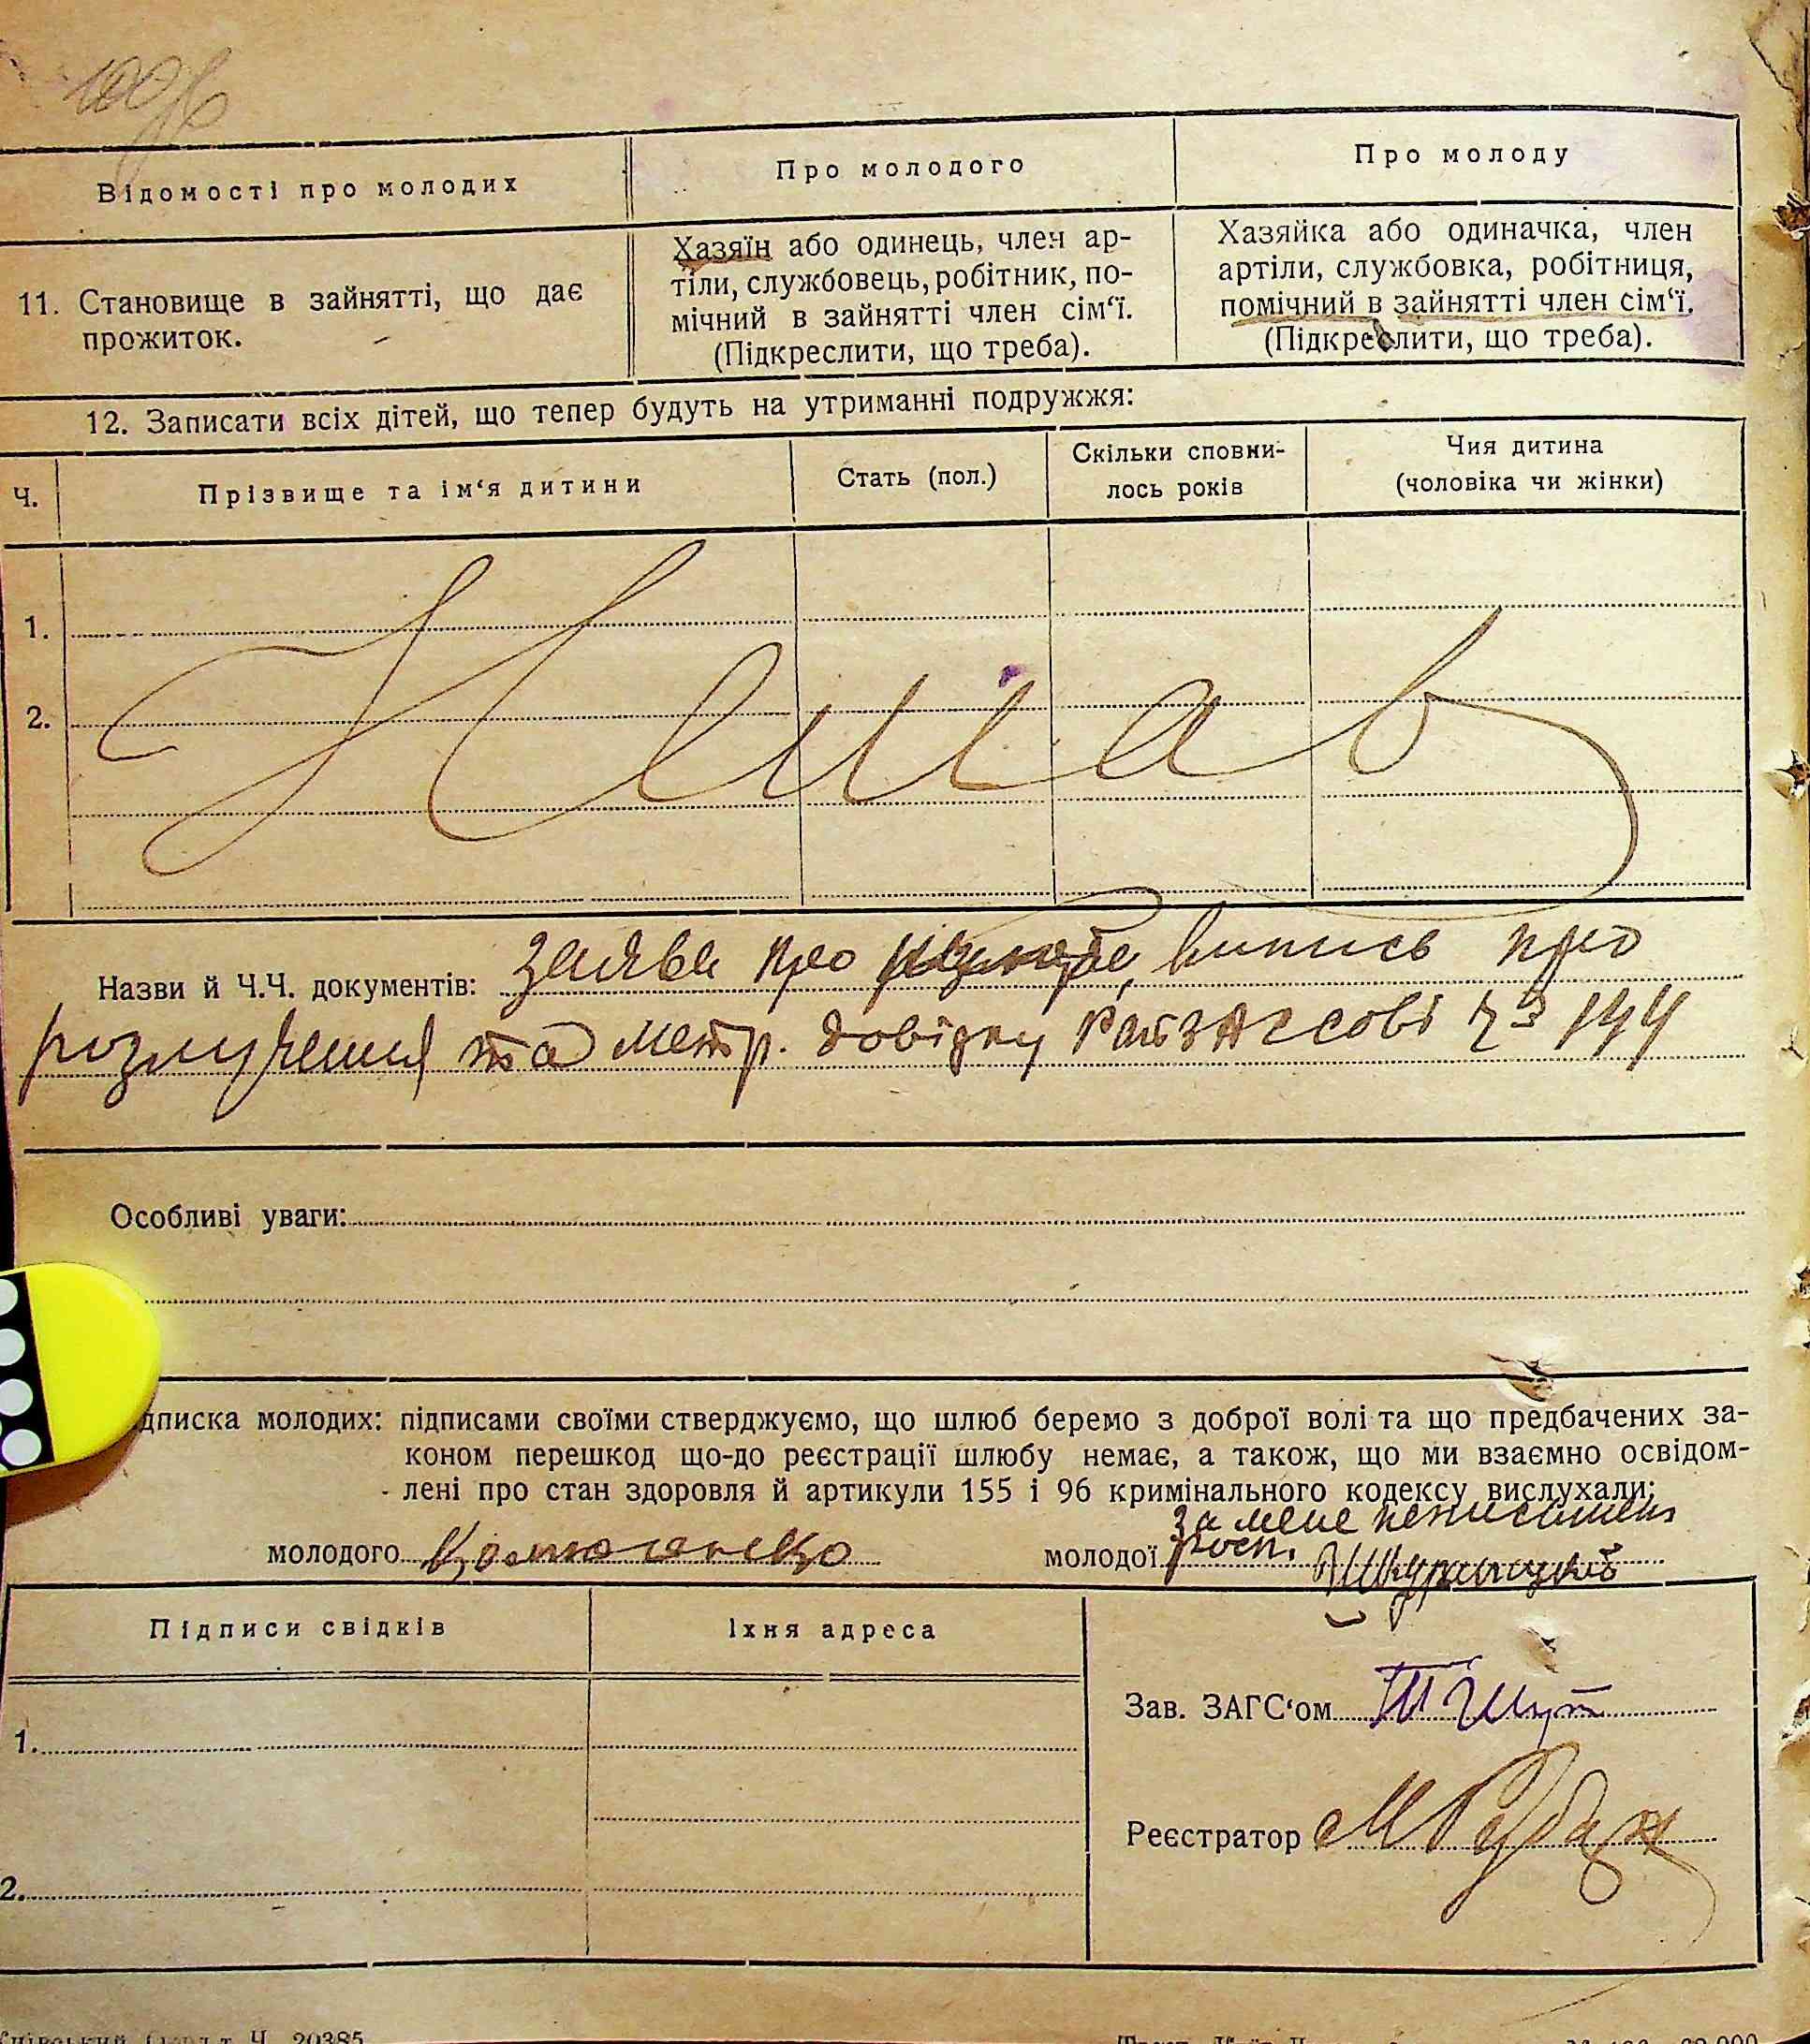 100
Відомості про молодих
Про молодого
Про молоду
11. Становище в зайнятті, що дає
прожиток.
Хазяїн або одинець, член ар-
тіли, службовець, робітник, по-
мічний в зайнятті член сім‘ї.
(Підкреслити, що треба).
Хазяйка або одиначка, член
артіли, службовка, робітниця,
помічний в зайнятті член сім‘ї.
(Підкреслити, що треба).
12. Записати всіх дітей, що тепер будуть на утриманні подружжя:
Ч.
Прізвище та ім‘я дитини
Стать (пол.)
Скільки сповни-
лось років
Чия дитина
(чоловіка чи жінки)
1.
2.
Немає
Назви й Ч.Ч. документів: заява про випись про
розлучення та метр. довідку 144
Особливі уваги:
дписка молодих: підписами своїми стверджуємо, що шлюб беремо з доброї волі та що предбачених за-
коном перешкод що-до реєстрації шлюбу немає, а також, що ми взаємно освідом-
лені про стан здоровля й артикули 155 і 96 кримінального кодексу вислухали;
за мене неписьмен
молодого
молодої розп.
Підписи свідків
Їхня адреса
1.
2.
Зав. ЗАГС‘ом
Реєстратор М Рубан
Ч. 20385